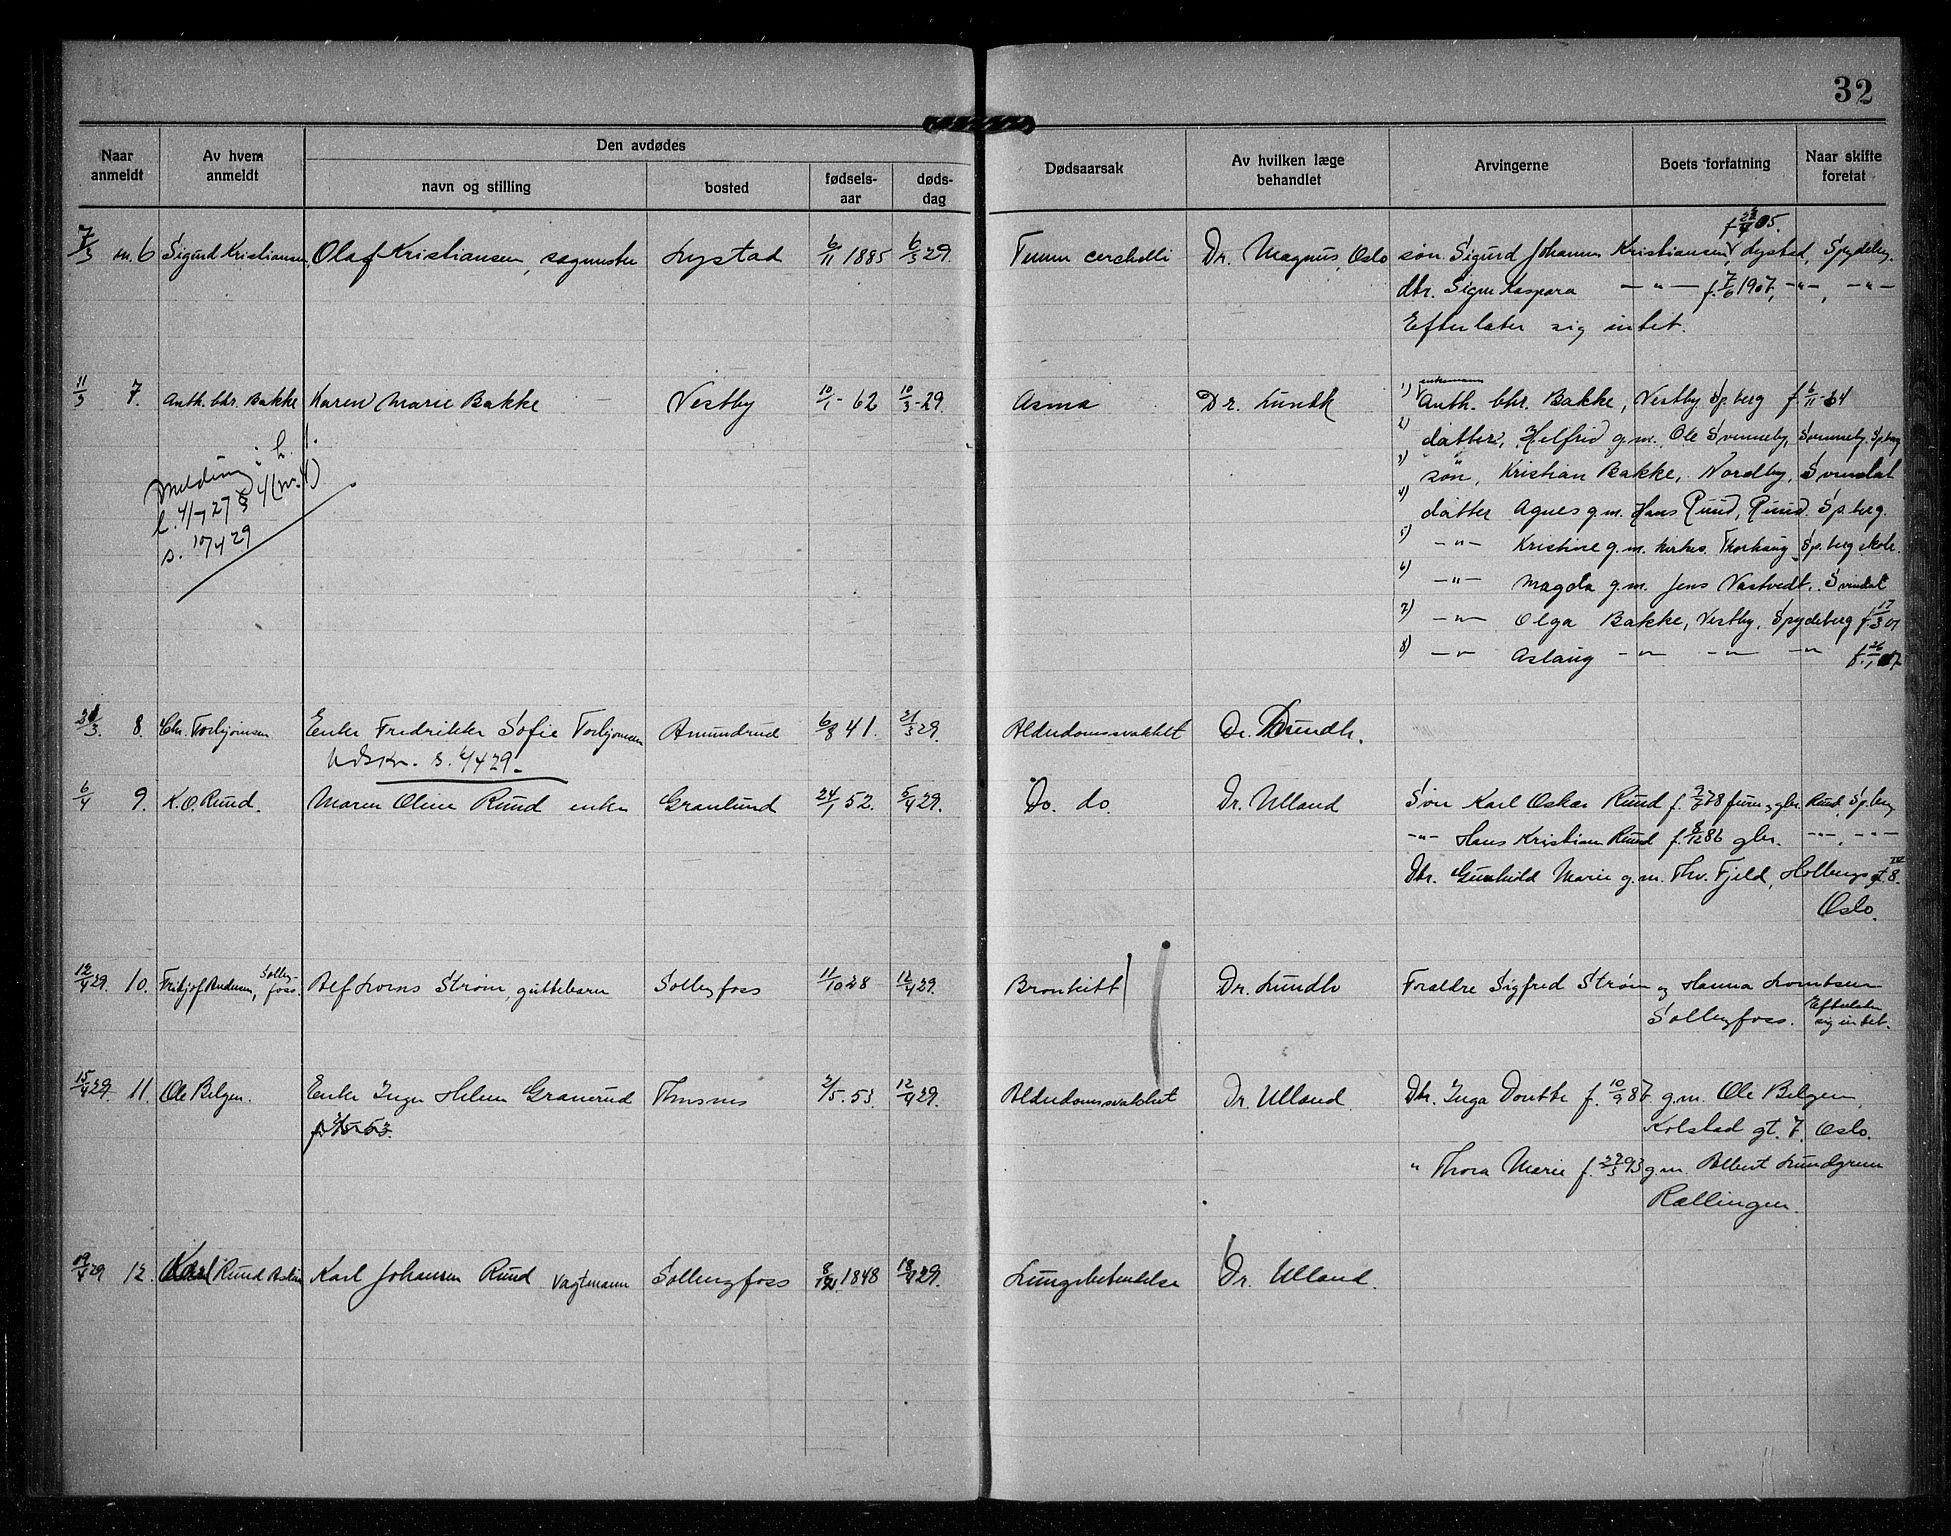 32
Naar anmeldt
Av hvem anmeldt
Den avdødes
navn og stilling
bosted
fødselsaar
dødsdag
Dødsaarsak
Av hvilken læge behandlet
Arvingerne
Boets forfatning
Naar skifte foretat
7/3 nr. 6 Sigurd Kristiansen, Olaf Kristiansen, sagmester Lystad 6/11 1885 6/3 29. Dr. Magnus, Oslo søn Sigurd Johannes Kristiansen Lystad, Spydeberg.
dtr. Signe Kaspara — " — f. 7/6 1907, — " —, — " —
Efterlater sig intet.
11/3 7. Anth. Chr. Bakke Karen Marie Bakke Vestby 10/1 - 62 10/3 - 29 Asma Dr. Lundh 1) enkemann Anth. Chr. Bakke, Vestby Sp.berg f. 6/11 - 64
2) datter, Helfrid g.m. Ole Svenneby, Svenneby. Sp.berg
3) søn, Kristian Bakke, Nordby, Svendal
4) datter Agnes g.m. Hans Ruud, Ruud. Sp.berg.
5) — " — Kristine g.m. kirkes. Thorhaug Sp.berg skole.
6) — " — Magda g.m. Jens Vastvedt. Svendal
7) — " — Olga Bakke, Vestby, Spydeberg f. 17/3 01
8) — " — Aslaug — " — — " — — " — f. 26/1 07
Melding i h. 1.
s. 10/4 29
8. Chr. Torbjørnsen Enke Fredrikke Sofie Torbjørnsen Amundrud 6/8 41. 21/3 29. Alderdomssvakhet Dr. Lundh.
Utskr. s. 4/4 29.
6/4 9. K.O. Ruud. Maren Oline Ruud enke Granlund 24/1 52. 5/4 29. Do. do. Dr. Ulland Søn Karl Oskar Ruud gbr. Ruud, Sp.berg
— " — Hans Kristian Ruud f. 8/12 86 gbr. — " —, — " —
Dtr. Gunhild Marie g.m. Thv. Fjeld, Holbergs gt. 8. IV
Oslo.
12/4 29. 10. Fritjof Andersen, Solbergfoss. Alf Lorns Strøm, guttebarn Solbergfoss 11/10 28 12/4 29. Bronkitt Dr. Lundh Foraldre Sigfred Strøm og Hanna Lorntsen
Solbergfoss. Efterlater sig intet.
15/4 29. 11. Ole Belgen. Enke Inger Helene Granerud 2/5. 53. 12/4 29. Alderdomssvakhet Dr. Ulland. Dtr. Inga Dorthe f. 10/9 87 g.m. Ole Belgen,
f. 2/5 - 53.
Kolstad gt. 7. Oslo.
" Thora Marie f. 27/3 93 g.m. Albert Lundgren
Rællingen.
19/4 29 12. Karl Ruud Karl Johansen Ruud vagtmann Solbergfoss 8/12 1848 18/4 29. Lungebetendelse Dr. Ulland.